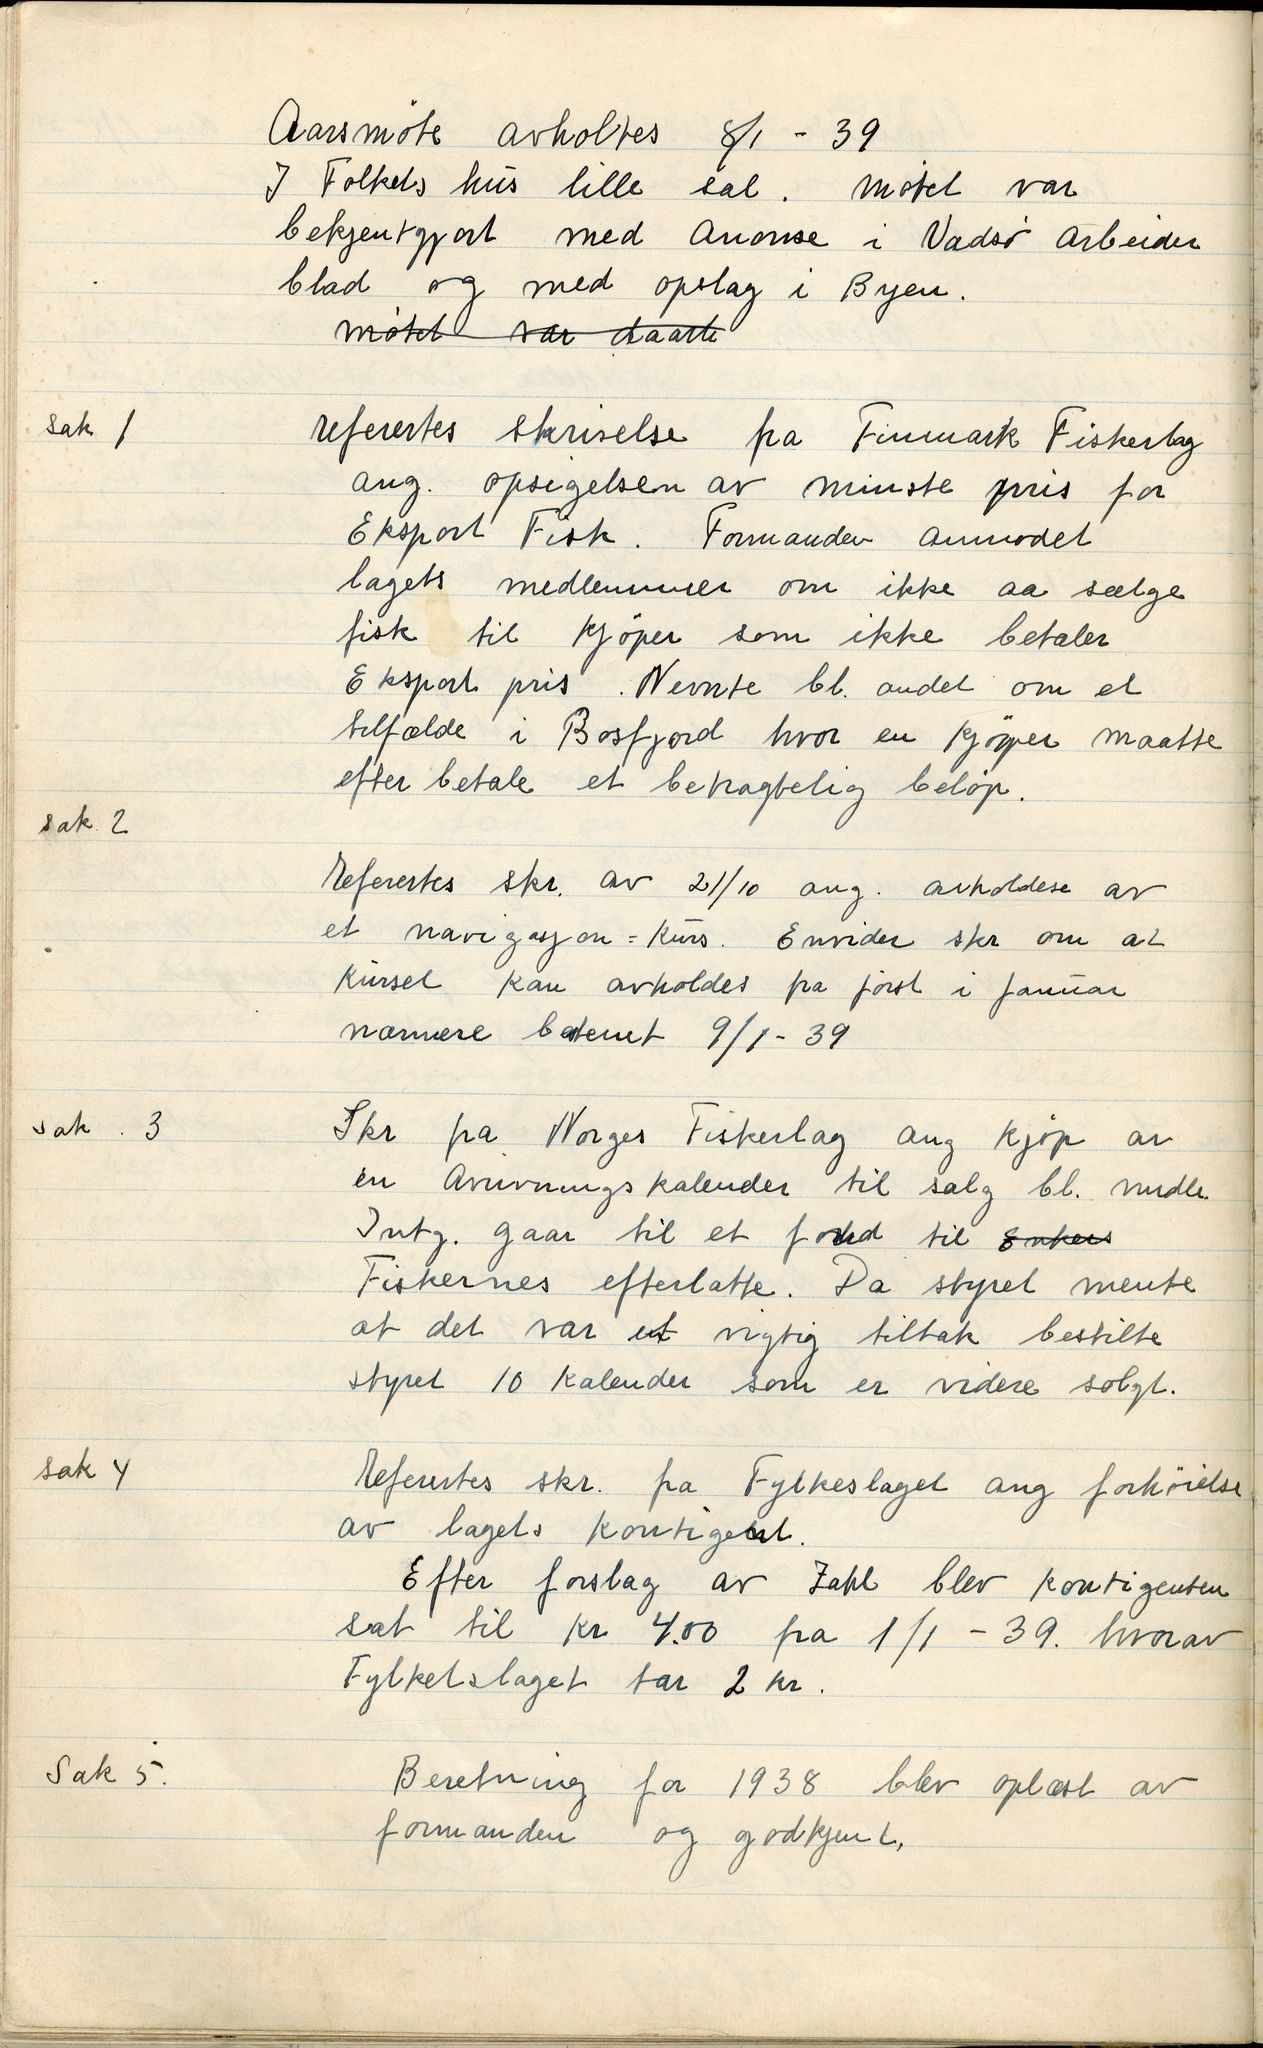 Aarsmöte avholtes 8/1 - 39
I Folkets hus lille sal. møtet var
bekjentgjort med Anonse i Vadsö Arbeider
blad og med opslag i Byen.
møtet var daarli
sak 1
referertes skrivelse fra Finmark Fiskerlag
ang. opsigelsen av minste pris for
Eksport Fisk. Formanden anmodet
lagets medlemmer om ikke aa sælge
fisk til Kjöper som ikke betaler
Eksport pris. Nevnte bl. andet om et
tilfælde i Bosfjord hvor en Kjöper maatte
efter betale et betragtelig belöp.
sak 2
Referertes skr. av 21/10 ang. avholdese av
et navigasjon = Kurs. Envider skr om at
Kurset kan avholdes fra först i januar
nærmere bestemt 9/1 - 39
sak. 3
Skr fra Norges Fiskerlag ang kjöp av
en Avrivnings kalender til salg bl. medle.
Intg. gaar til et fond til Enkers
Fiskernes efterlatte. Da styret mente
at det var et vigtig tiltak bestilte
styret 10 Kalender som er videre solgt.
sak 4
Referertes skr. fra Fylkeslaget ang forhöielse
av lagets Kontigent.
Efter forslag av Zahl blev Kontigenten
sat til Kr 4.00 fra 1/1 - 39. hvorav
Fylketslaget tar 2 kr.
Sak 5.
Beretning for 1938 blev oplæst av
formanden og godkjent.